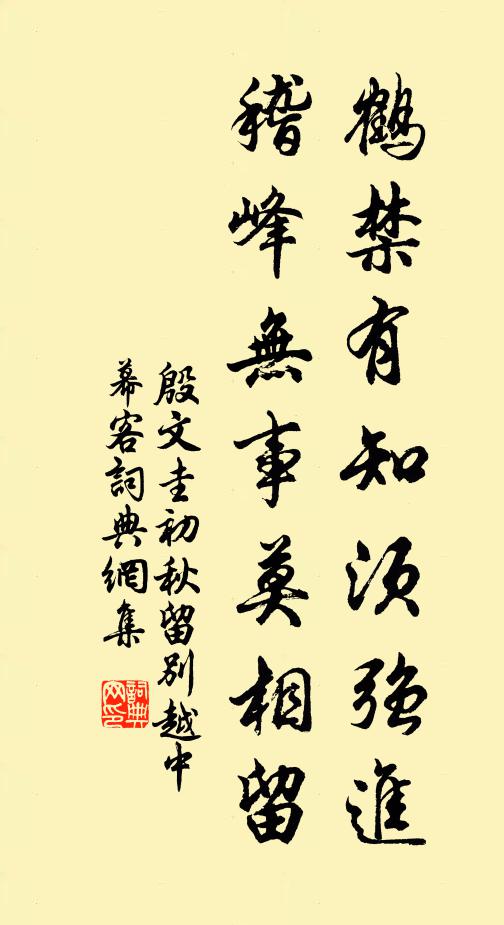 鶴禁有知須強進
稽峰無事莫相留
殷文圭初秋留別越中
幕客詞典網集
詞典网印